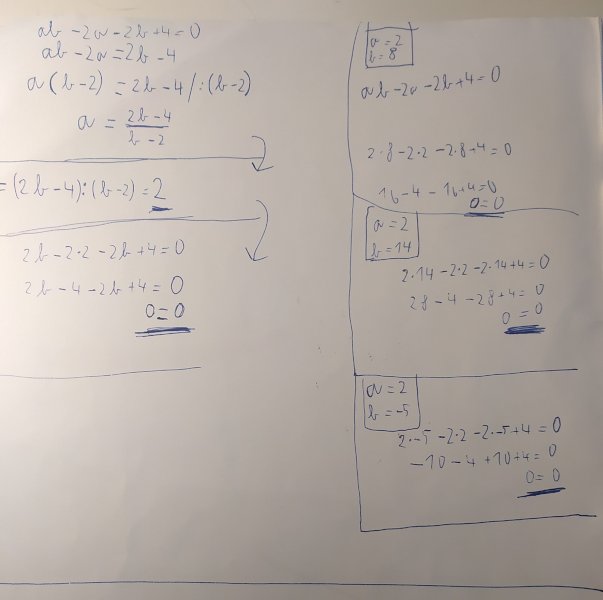 ab - 2a - 2b + 4 = 0
ab - 2a = 2b - 4
a(b - 2) = 2b - 4 /:(b-2)
a = \frac{2b-4}{b-2}
= (2b-4):(b-2) = 2
2b - 2·2 - 2b + 4 = 0
2b - 4 - 2b + 4 = 0
0 = 0
a = 2
b = 8
ab - 2a - 2b + 4 = 0
2·8 - 2·2 - 2·8 + 4 = 0
16 - 4 - 16 + 4 = 0
0 = 0
a = 2
b = 14
2·14 - 2·2 - 2·14 + 4 = 0
28 - 4 - 28 + 4 = 0
0 = 0
a = 2
b = -5
2·-5 - 2·2 - 2·-5 + 4 = 0
-10 - 4 + 10 + 4 = 0
0 = 0